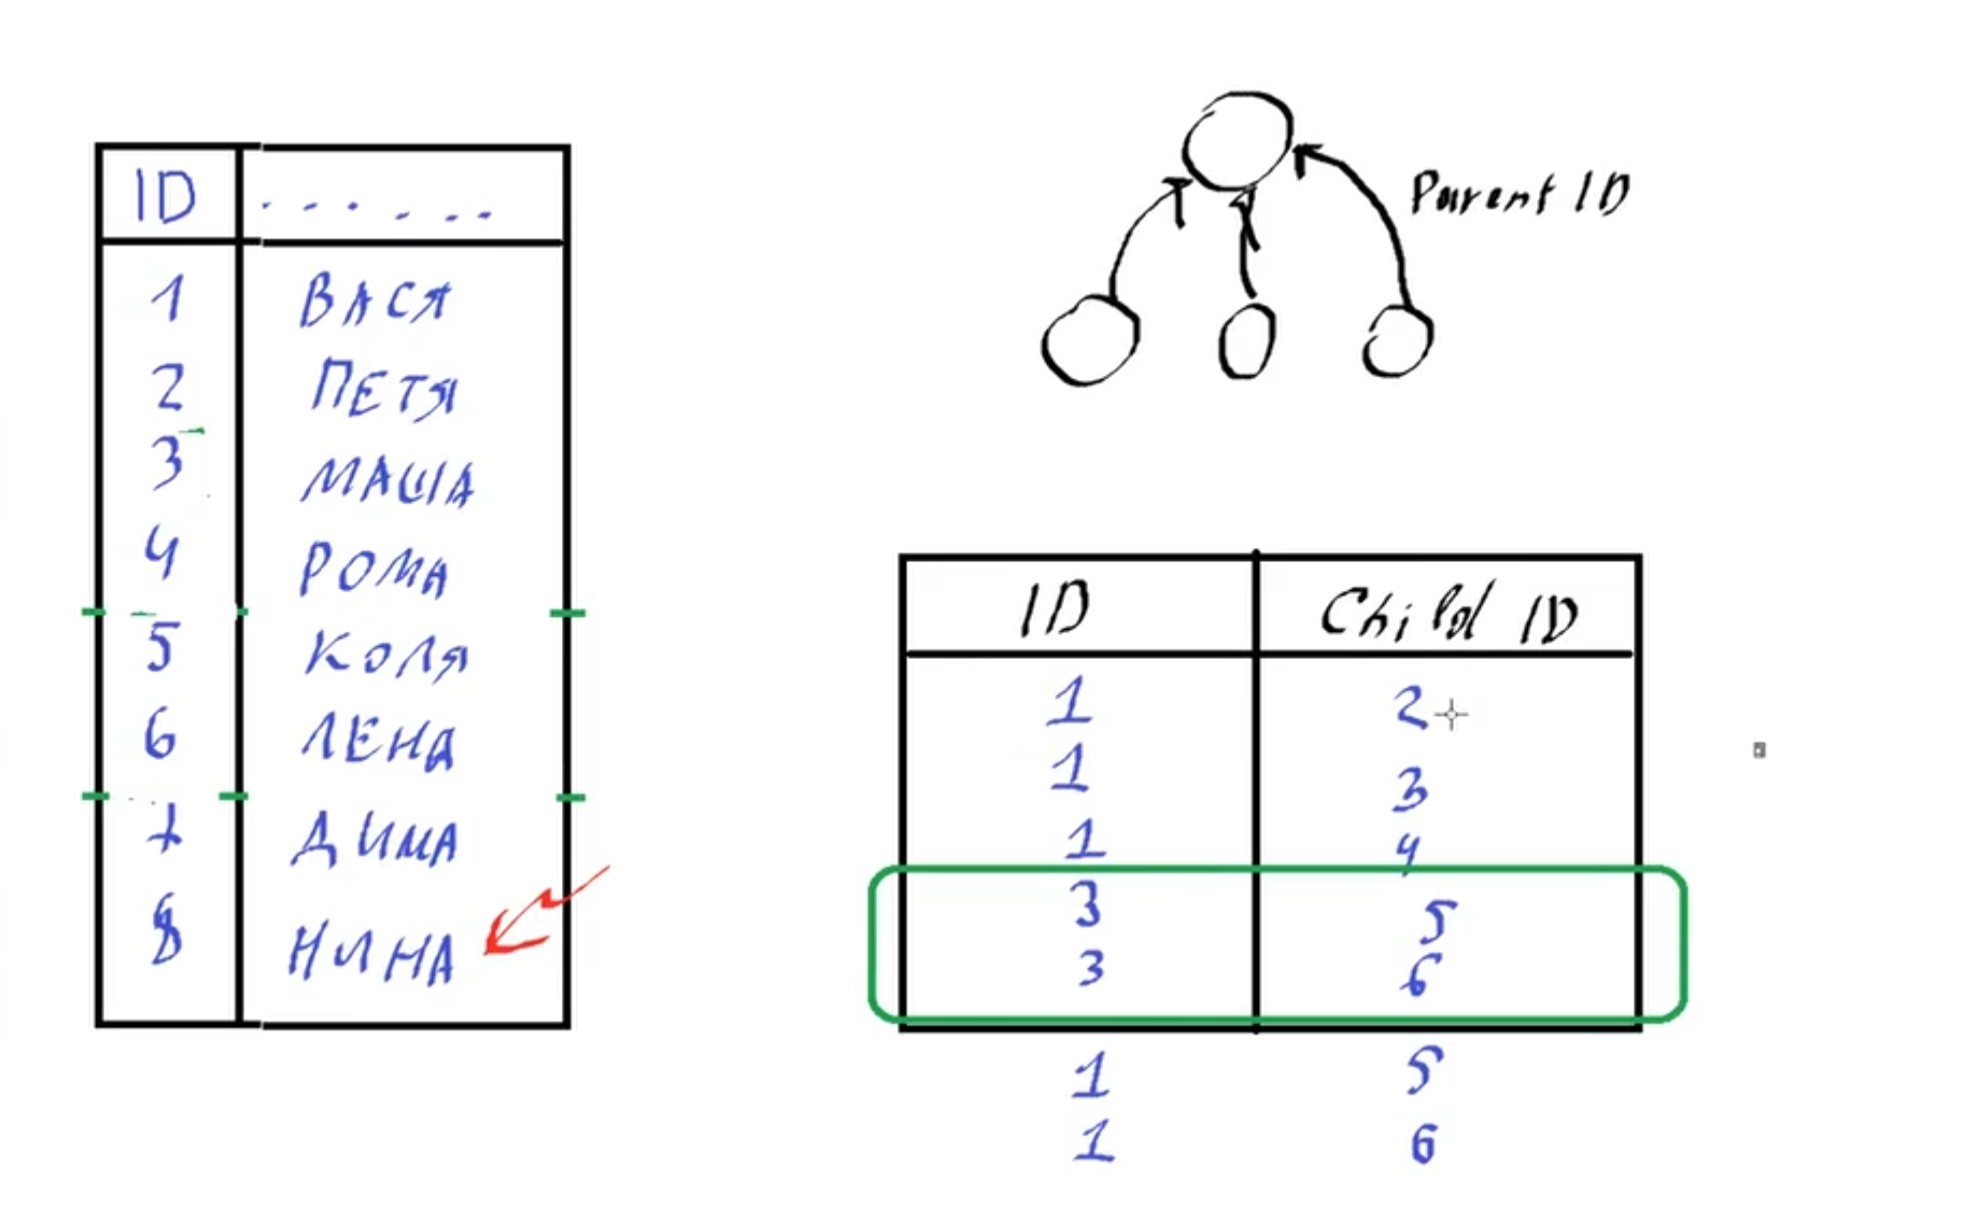 ID ......
1 ВАСЯ
2 ПЕТЯ
3 МАША
4 РОМА
5 КОЛЯ
6 ЛЕНА
7 ДИМА
8 НИНА
Parent ID
ID Child ID
1 2
1 3
1 4
3 5
3 6
1 5
1 6